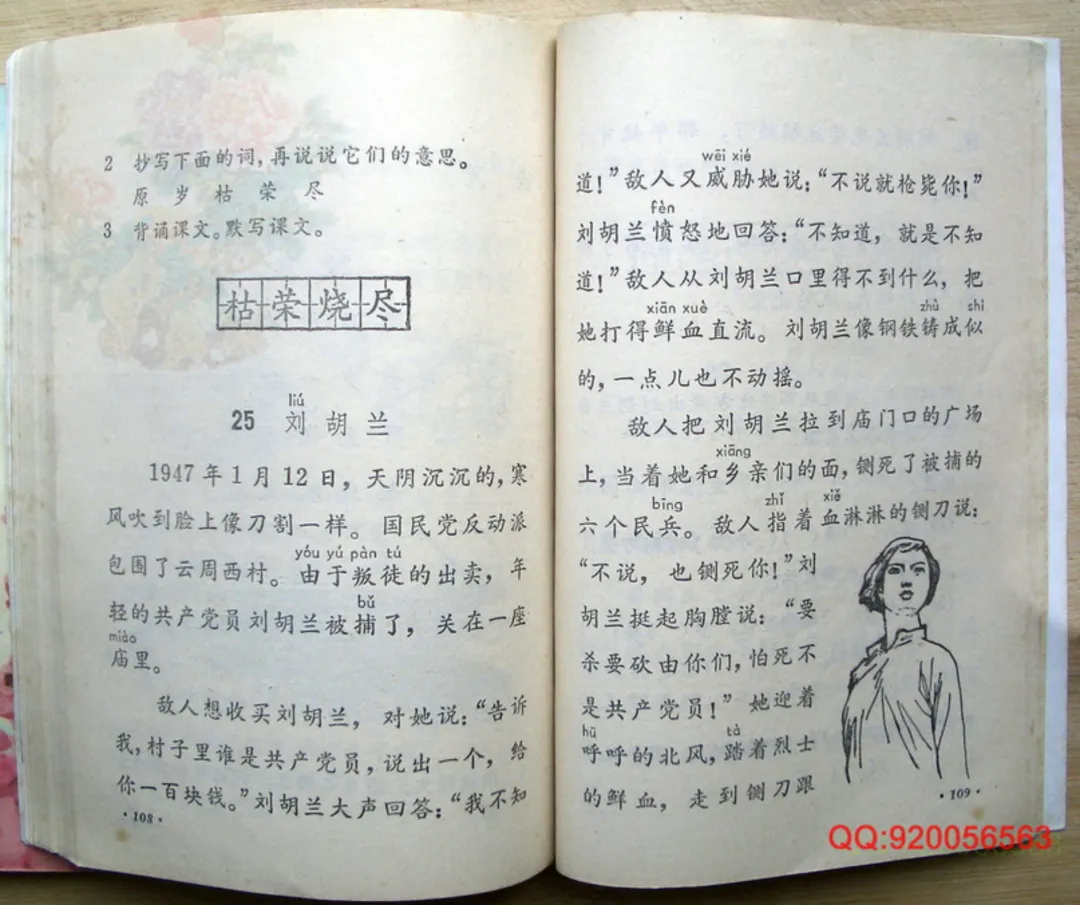 2 抄写下面的词，再说说它们的意思。
原 岁 枯 荣 尽
3 背诵课文。默写课文。
枯荣烧尽
liú
25 刘 胡 兰
1947年1月12日，天阴沉沉的，寒
风吹到脸上像刀割一样。国民党反动派
yóu yú pàn tú
包围了云周西村。由于叛徒的出卖，年
bǔ
轻的共产党员刘胡兰被捕了，关在一座
miào
庙里。
敌人想收买刘胡兰，对她说：“告诉
我，村子里谁是共产党员，说出一个，给
你一百块钱。”刘胡兰大声回答：“我不知
·108·
wēi xié
道！”敌人又威胁她说：“不说就枪毙你！”
fèn
刘胡兰愤怒地回答：“不知道，就是不知
道！”敌人从刘胡兰口里得不到什么，把
xiān xuè zhù shì
她打得鲜血直流。刘胡兰像钢铁铸成似
的，一点儿也不动摇。
敌人把刘胡兰拉到庙门口的广场
xiāng
上，当着她和乡亲们的面，铡死了被捕的
bīng zhǐ xiě
六个民兵。敌人指着血淋淋的铡刀说：
“不说，也铡死你！”刘
胡兰挺起胸膛说：“要
杀要砍由你们，怕死不
是共产党员！”她迎着
hū tà
呼呼的北风，踏着烈士
的鲜血，走到铡刀跟
·109·
QQ:920056563